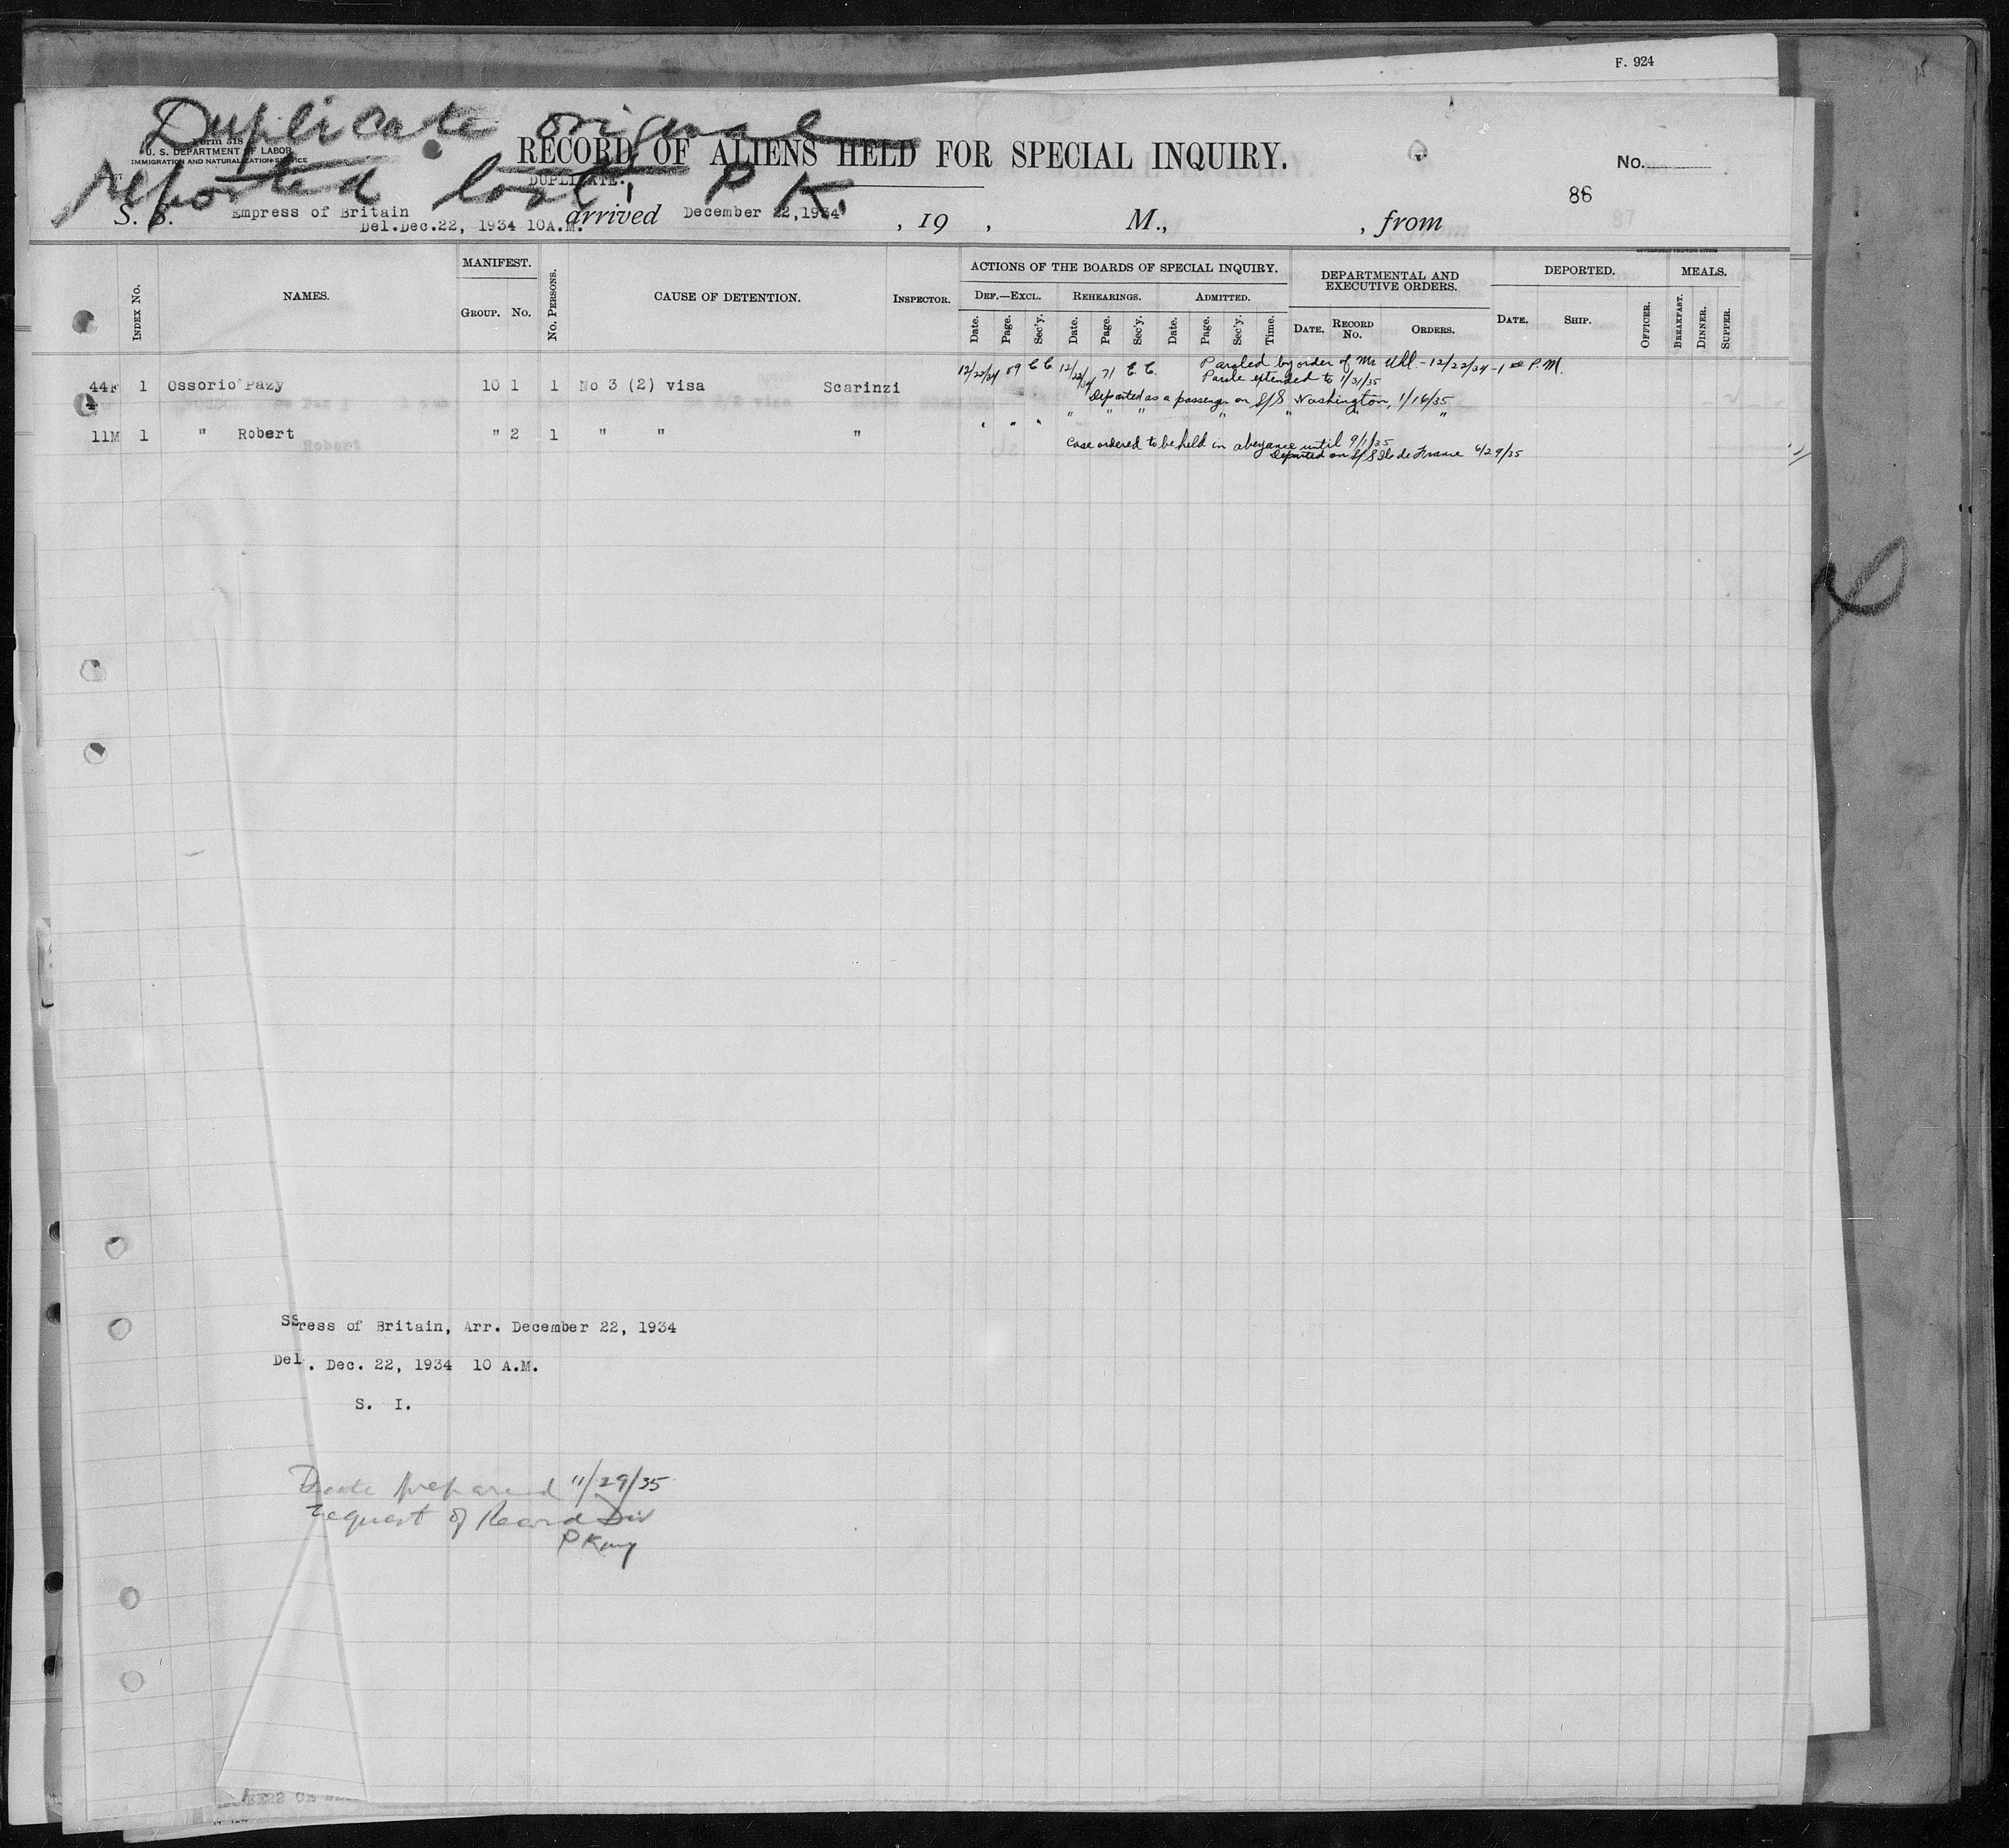 F. 924
Duplicate original
Form 518
U. S. DEPARTMENT OF LABOR
IMMIGRATION AND NATURALIZATION SERVICE
RECORD OF ALIENS HELD FOR SPECIAL INQUIRY.
No.
DUPLICATE.
reported lost. P K.
86
87
S. S. Empress of Britain arrived December 22, 1934 , 19 , M., , from
Del.Dec.22, 1934 10A.M.
INDEX No. NAMES. MANIFEST. GROUP. No. No. PERSONS. CAUSE OF DETENTION. INSPECTOR. ACTIONS OF THE BOARDS OF SPECIAL INQUIRY. DEPARTMENTAL AND EXECUTIVE ORDERS. DEPORTED. MEALS.
DEF.—EXCL. REHEARINGS. ADMITTED.
Date. Page. Sec'y. Date. Page. Sec'y. Date. Page. Sec'y. Time. DATE. RECORD No. ORDERS. DATE. SHIP. OFFICER. BREAKFAST. DINNER. SUPPER.
12/22/34 59 C C. 12/22/34 71 C C. Paroled by order of Mr Uhl - 12/22/34 - 1 00 P.M.
Parole extended to 1/31/35
44F 1 Ossorio Pazy 10 1 1 No 3 (2) visa Scarinzi
Departed as a passenger on S/S Washington, 1/16/35
" " " " " " " " "
11M 1 " Robert " 2 1 " " "
Case ordered to be held in abeyance until 9/1/35
Departed on S/S Ile de France 6/29/35
SS ress of Britain, Arr. December 22, 1934
Del. Dec. 22, 1934 10 A.M.
S. I.
prepared 11/29/35
request of Record Div
P King